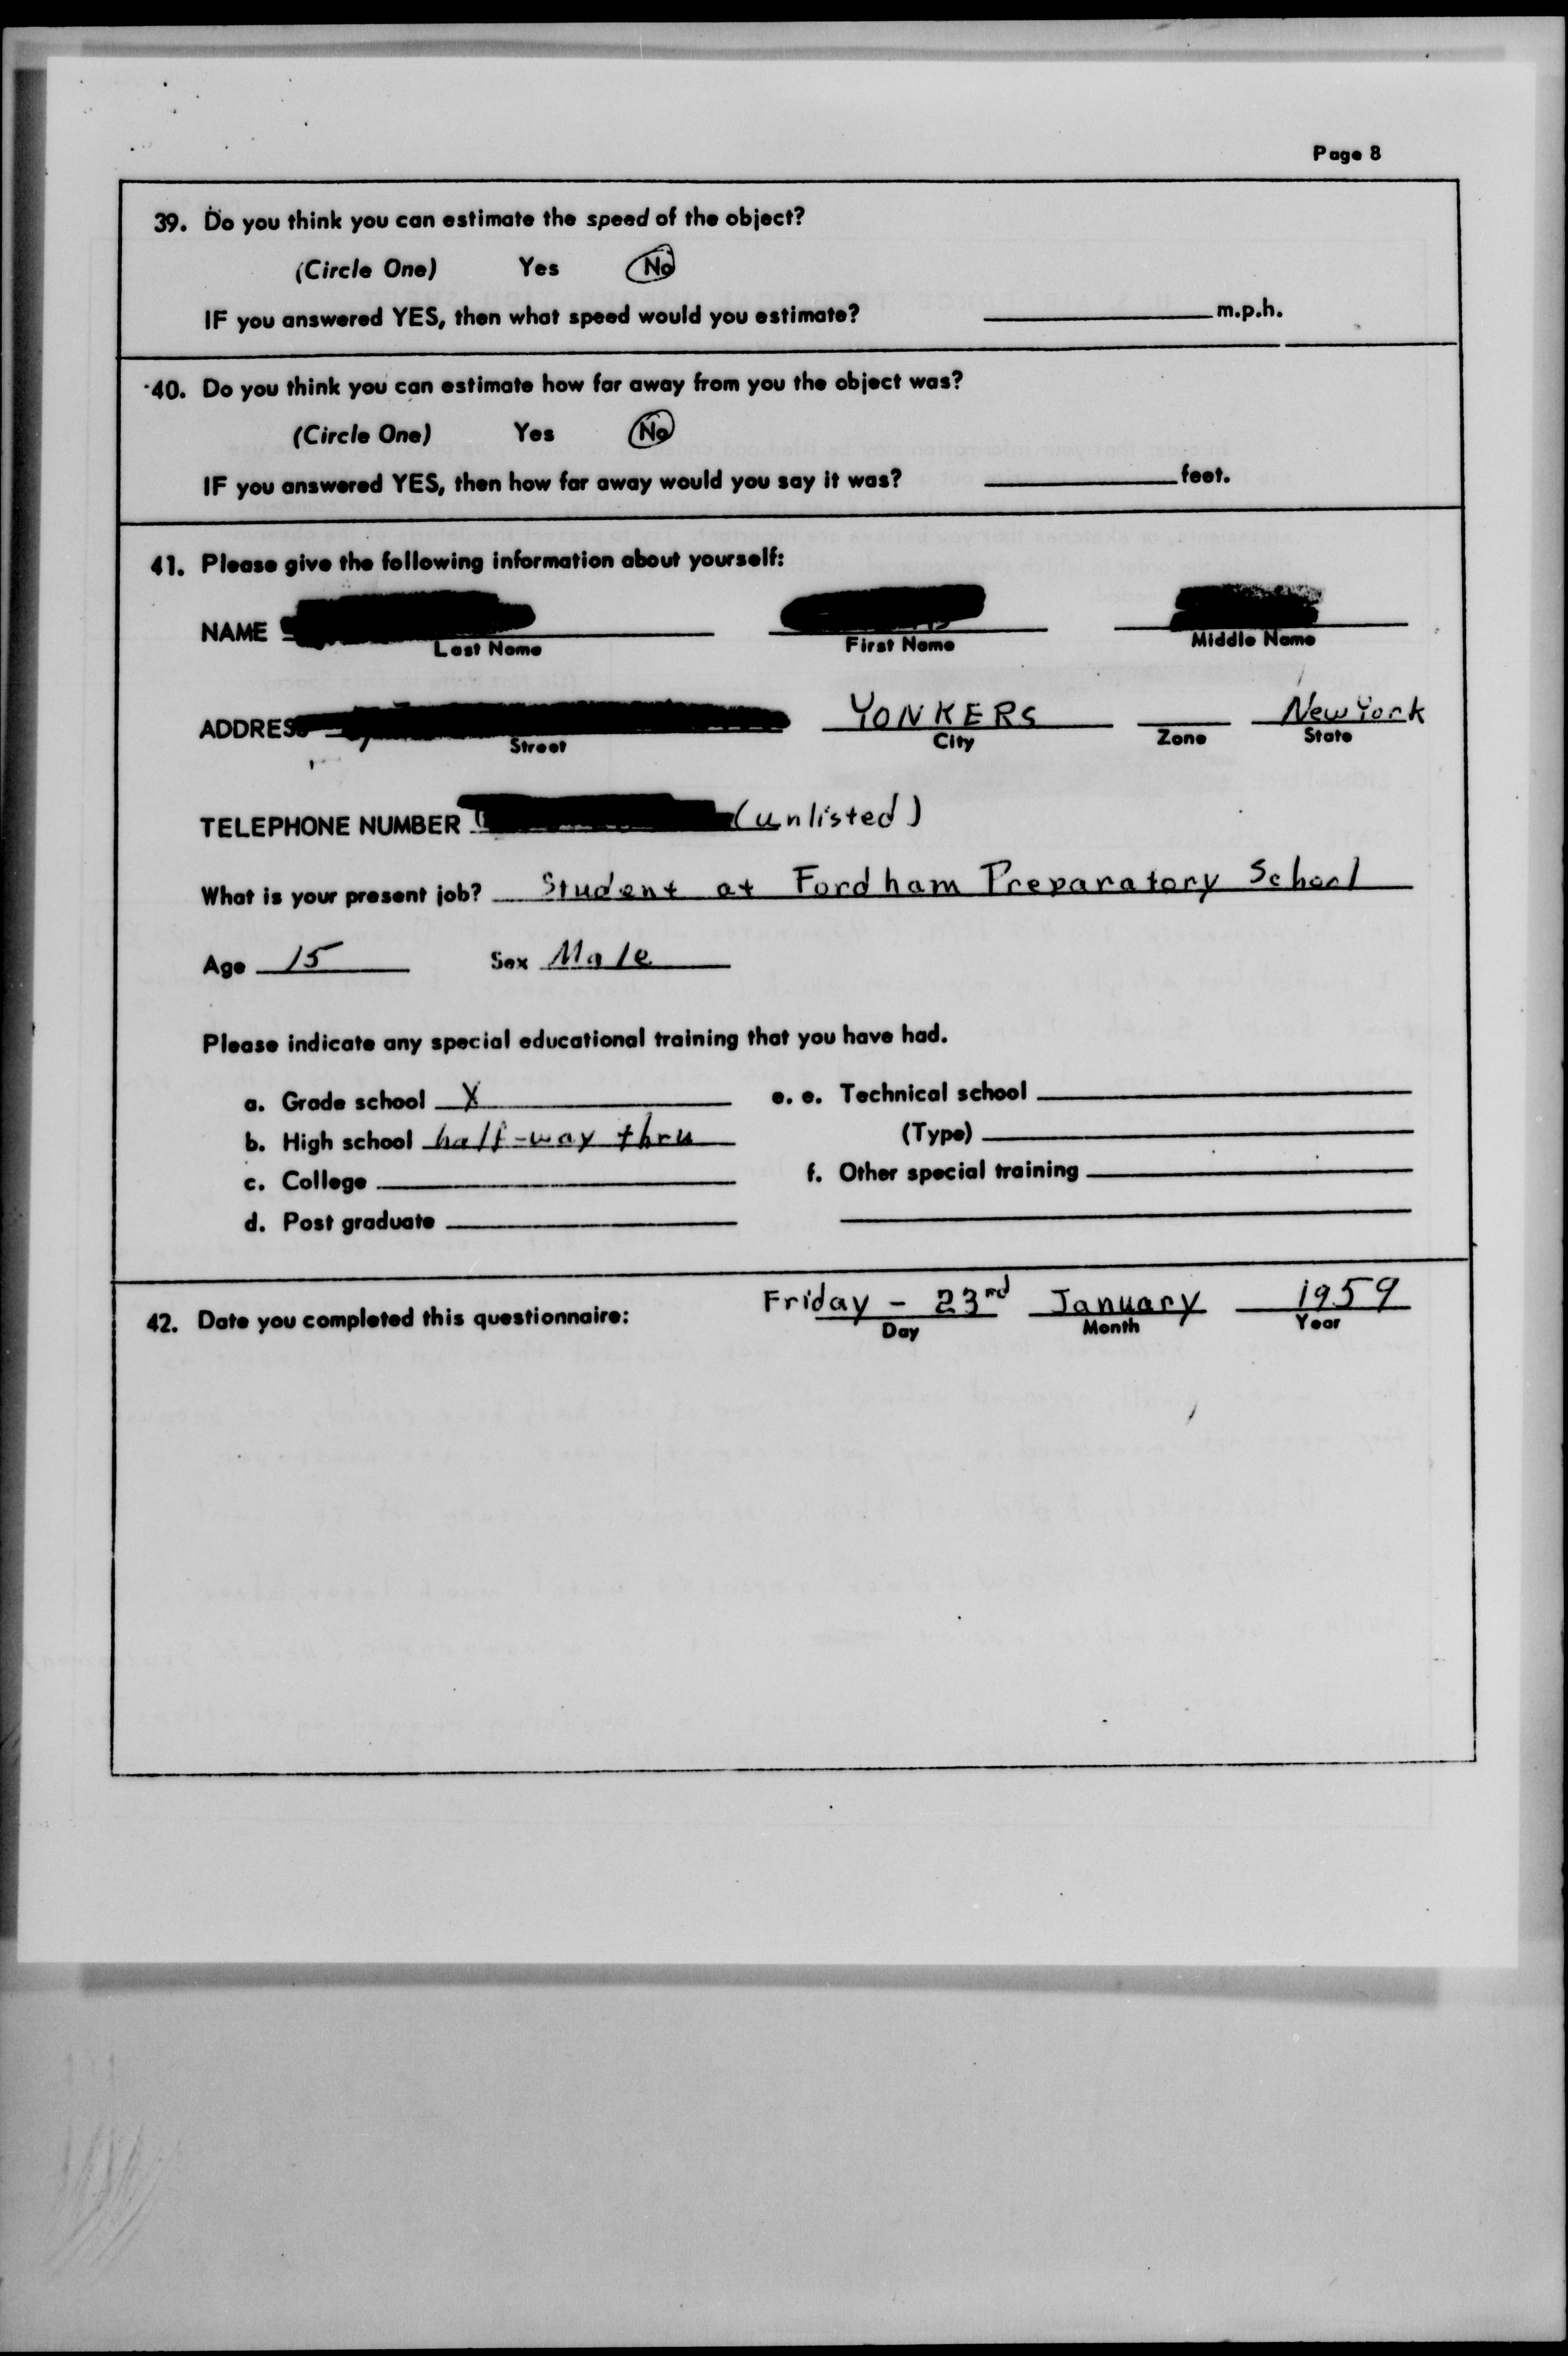 Page 8
39. Do you think you can estimate the speed of the object?
(Circle One) Yes No
IF you answered YES, then what speed would you estimate? m.p.h.
40. Do you think you can estimate how far away from you the object was?
(Circle One) Yes No
IF you answered YES, then how far away would you say it was? feet.
41. Please give the following information about yourself:
NAME
Last Name First Name Middle Name
ADDRESS YONKERS New York
Street City Zone State
TELEPHONE NUMBER (unlisted)
What is your present job? Student at Fordham Preparatory School
Age 15 Sex Male
Please indicate any special educational training that you have had.
a. Grade school X e. e. Technical school
b. High school half-way thru (Type)
c. College f. Other special training
d. Post graduate
42. Date you completed this questionnaire: Friday - 23rd January 1959
Day Month Year